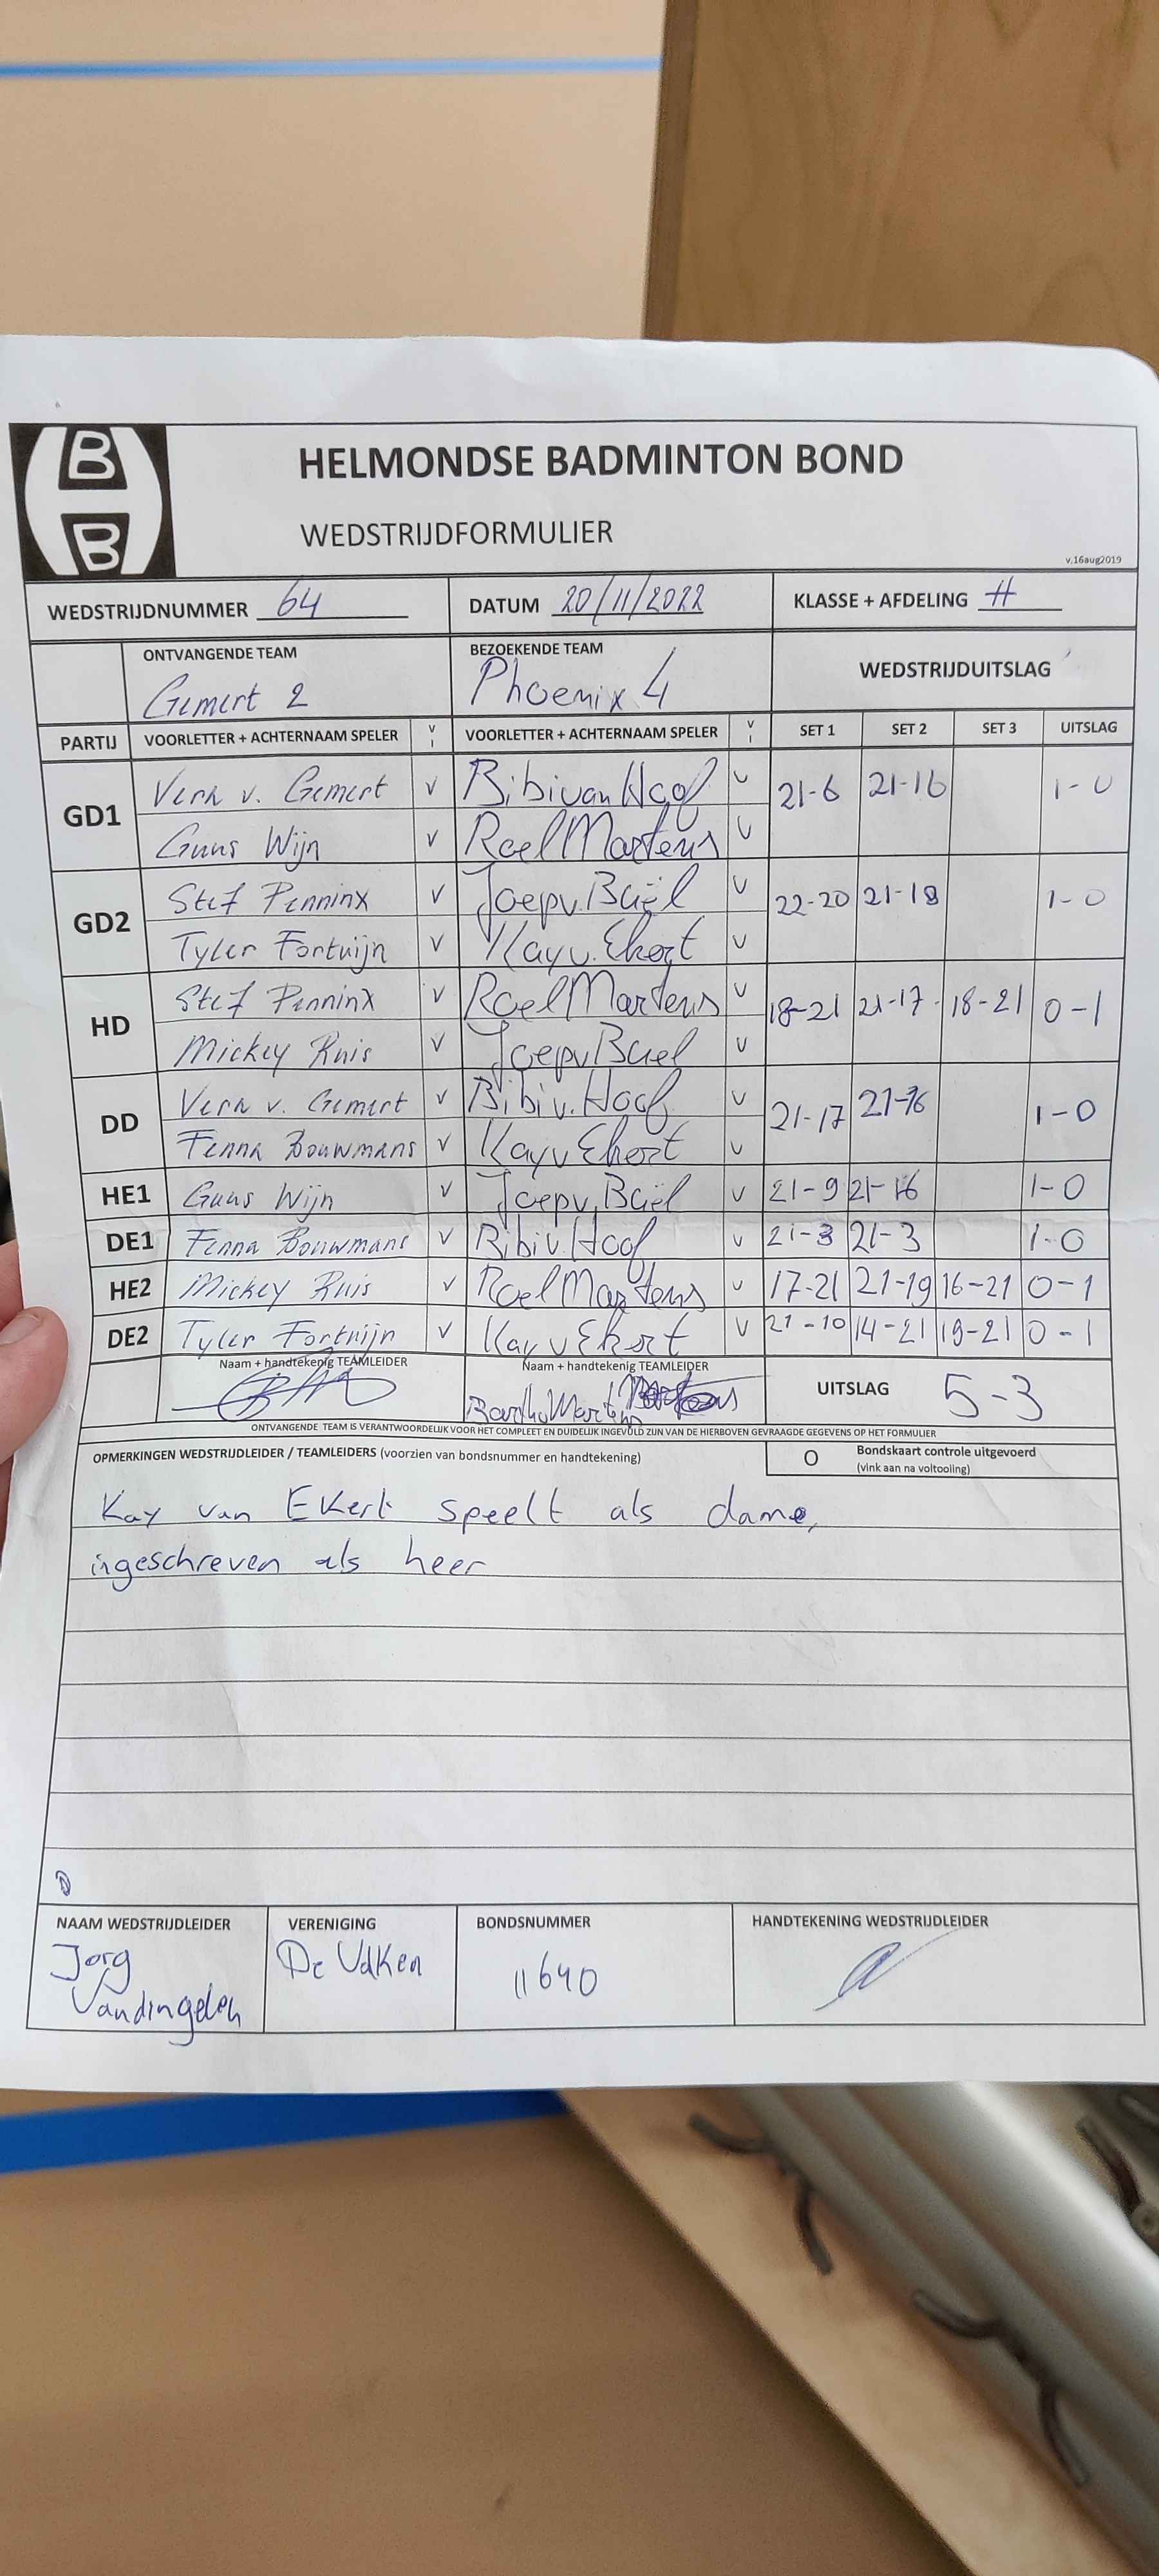 B
B
HELMONDSE BADMINTON BOND
WEDSTRIJDFORMULIER
v.16aug2019
WEDSTRIJDNUMMER 64 DATUM 20/11/2022 KLASSE + AFDELING H
ONTVANGENDE TEAM BEZOEKENDE TEAM WEDSTRIJDUITSLAG
Gemert 2 Phoenix 4
PARTIJ VOORLETTER + ACHTERNAAM SPELER V I VOORLETTER + ACHTERNAAM SPELER V I SET 1 SET 2 SET 3 UITSLAG
GD1 Vera v. Gemert V Bibi van Hoof V 21-6 21-16 1-0
Guus Wijn V Roel Martens V
GD2 Stef Penninx V Joep v. Baël V 22-20 21-18 1-0
Tyler Fortuijn V Kay v. Ekert V
HD Stef Penninx V Roel Martens V 18-21 21-17 18-21 0-1
Mickey Ruis V Joep v Bael V
DD Vera v. Gemert V Bibi v. Hoof V 21-17 21-16 1-0
Fenna Bouwmans V Kay v Ekert V
HE1 Guus Wijn V Joep v. Baël V 21-9 21-16 1-0
DE1 Fenna Bouwmans V Bibi v. Hoof V 21-3 21-3 1-0
HE2 Mickey Ruis V Roel Martens V 17-21 21-19 16-21 0-1
DE2 Tyler Fortuijn V Kay v Ekert V 21-10 14-21 19-21 0-1
Naam + handtekenig TEAMLEIDER Naam + handtekenig TEAMLEIDER
UITSLAG 5-3
ONTVANGENDE TEAM IS VERANTWOORDELIJK VOOR HET COMPLEET EN DUIDELIJK INGEVULD ZIJN VAN DE HIERBOVEN GEVRAAGDE GEGEVENS OP HET FORMULIER
OPMERKINGEN WEDSTRIJDLEIDER / TEAMLEIDERS (voorzien van bondsnummer en handtekening) O Bondskaart controle uitgevoerd
(vink aan na voltooling)
Kay van Ekert speelt als dame,
ingeschreven als heer
NAAM WEDSTRIJDLEIDER VERENIGING BONDSNUMMER HANDTEKENING WEDSTRIJDLEIDER
Jorg De Valken 11640
Vandingelen